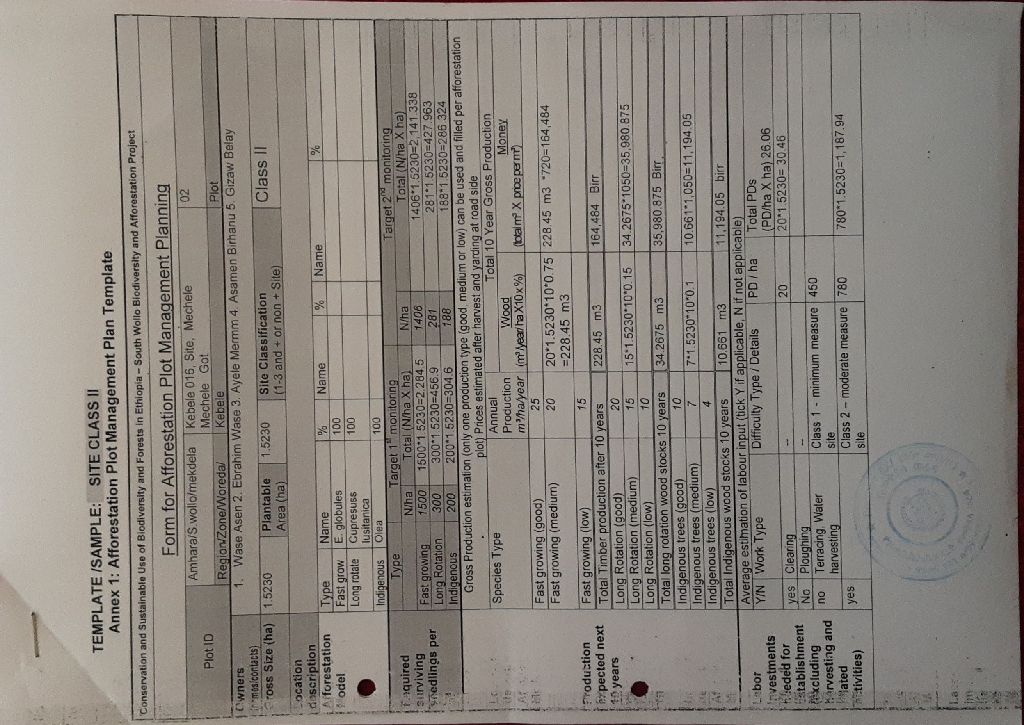 TEMPLATE /SAMPLE: SITE CLASS II
Annex 1: Afforestation Plot Management Plan Template
Conservation and Sustainable Use of Biodiversity and Forests in Ethiopia – South Wollo Biodiversity and Afforestation Project
Form for Afforestation Plot Management Planning
Plot ID
Amhara/S.wollo/mekdela
Kebele 016, Site, Mechele
02
Mechele Got
Region/Zone/Woreda/
Kebele
Plot
Owners
1. Wase Asen 2. Ebrahim Wase 3. Ayele Mermm 4. Asamen Birhanu 5. Gizaw Belay
Gross Size (ha)
1.5230
Plantable Area (ha)
1.5230
Site Classification (1-3 and + or non + Site)
Class II
Type Name % Name % Name %
Fast grow E. globules 100
Long rotate Cupresuss lusitanica 100
Indigenous Olea 100
Type Target 1st monitoring Target 2nd monitoring
N/ha Total (N/ha X ha) N/ha Total (N/ha X ha)
Fast growing 1500 1500*1 5230=2,284.5 1406 1406*1.5230=2,141.338
Long Rotation 300 300*1 5230=456.9 281 281*1 5230=427.963
Indigenous 200 200*1 5230=304.6 188 188*1 5230=286 324
Gross Production estimation (only one production type (good, medium or low) can be used and filled per afforestation
plot) Prices estimated after harvest and yarding at road side
Species Type
Annual Production m³/ha/year
Total 10 Year Gross Production
Wood (m³/year/ha X10x%)
Money
Fast growing (good) 25
Fast growing (medium) 20 20*1.5230*10*0.75 =228.45 m3 228.45 m3 *720=164,484
Fast growing (low) 15
Total Timber production after 10 years 228.45 m3 164,484 Birr
Long Rotation (good) 20
Long Rotation (medium) 15 15*1.5230*10*0.15 34.2675*1050=35,980.875
Long Rotation (low) 10
Total long rotation wood stocks 10 years 34.2675 m3 35,980.875 Birr
Indigenous trees (good) 10
Indigenous trees (medium) 7 7*1.5230*10*0.1 10.661*1,050=11,194.05
Indigenous trees (low) 4
Total Indigenous wood stocks 10 years 10.661 m3 11,194.05 birr
Average estimation of labour input (tick Y if applicable, N if not applicable)
Y/N Work Type Difficulty Type / Details PD / ha Total PDs (PD/ha X ha) 26.06
yes Clearing -- 20 20*1.5230= 30.46
No Ploughing --
no Terracing, Water harvesting Class 1 - minimum measure site 450
yes Class 2 – moderate measure site 780 780*1.5230=1,187.94